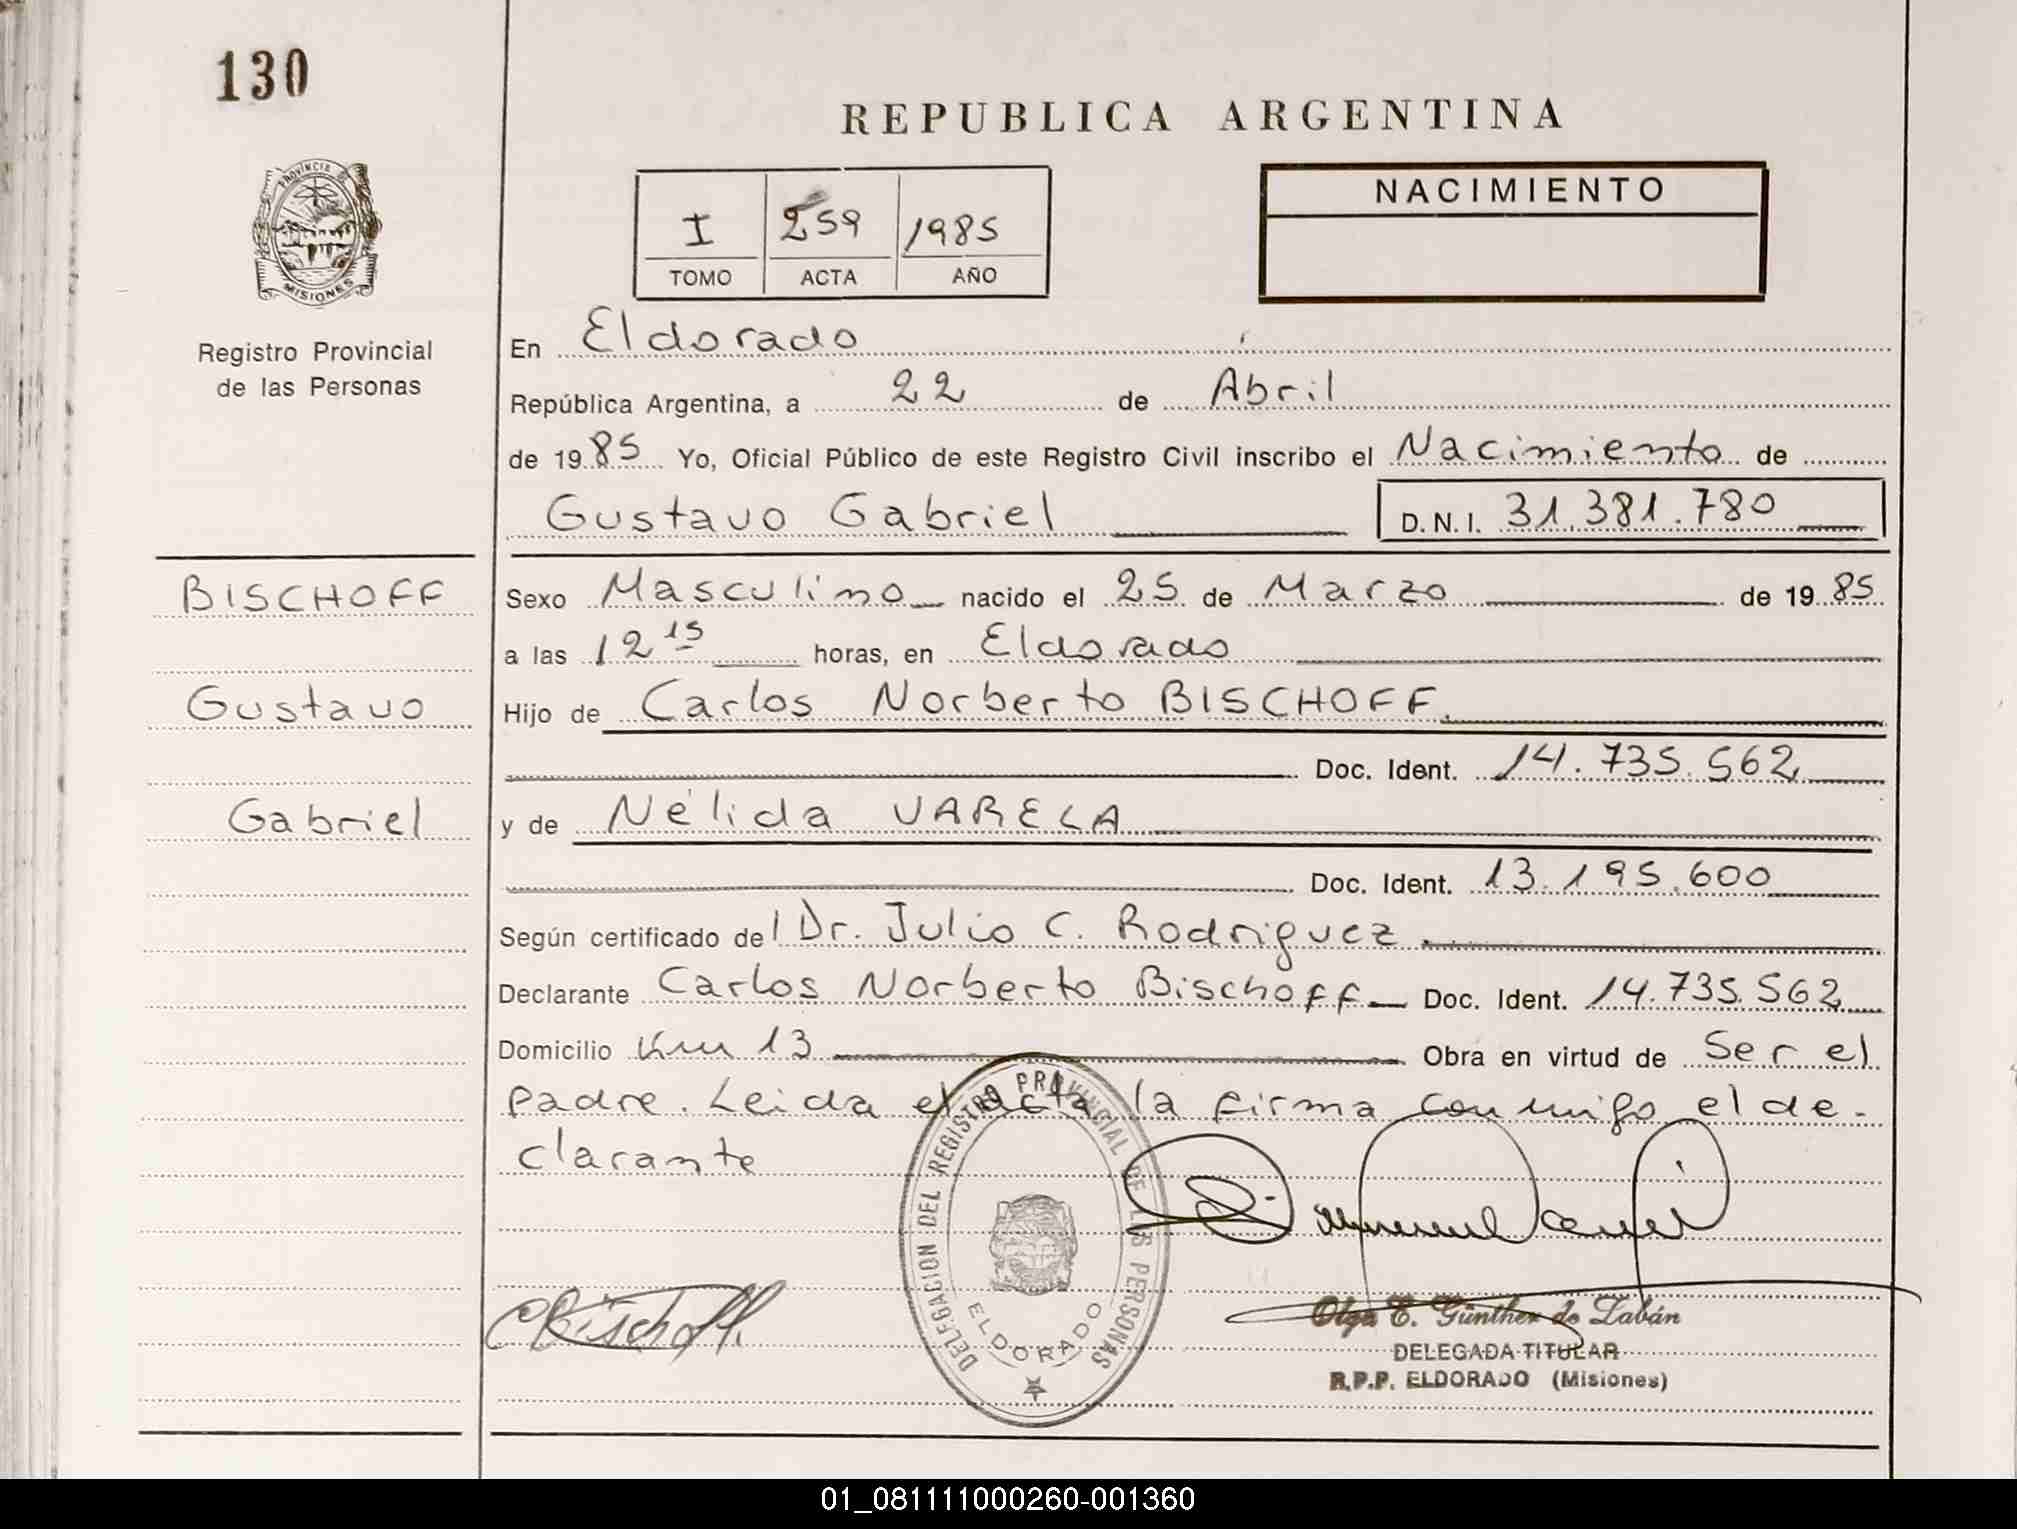 130
REPUBLICA ARGENTINA
PROVINCIA DE
MISIONES
Registro Provincial
de las Personas
I 259 1985
TOMO ACTA AÑO
NACIMIENTO
En Eldorado
República Argentina, a 22 de Abril
de 1985 Yo, Oficial Público de este Registro Civil inscribo el Nacimiento de
Gustavo Gabriel D.N.I. 31.381.780
BISCHOFF
Gustavo
Gabriel
Sexo Masculino nacido el 25 de Marzo de 1985
a las 12 15 horas, en Eldorado
Hijo de Carlos Norberto BISCHOFF
Doc. Ident. 14.735.562
y de Nélida VARELA
Doc. Ident. 13.195.600
Según certificado del Dr. Julio C. Rodriguez
Declarante Carlos Norberto Bischoff Doc. Ident. 14.735.562
Domicilio Km 13 Obra en virtud de Ser el
padre. Leida el acta la firma conmigo el de-
clarante
DELEGACION DEL REGISTRO PROVINCIAL DE LAS PERSONAS
ELDORADO
CBischoff.
Olga E. Günther de Labán
DELEGADA TITULAR
R.P.P. ELDORADO (Misiones)
01_081111000260-001360